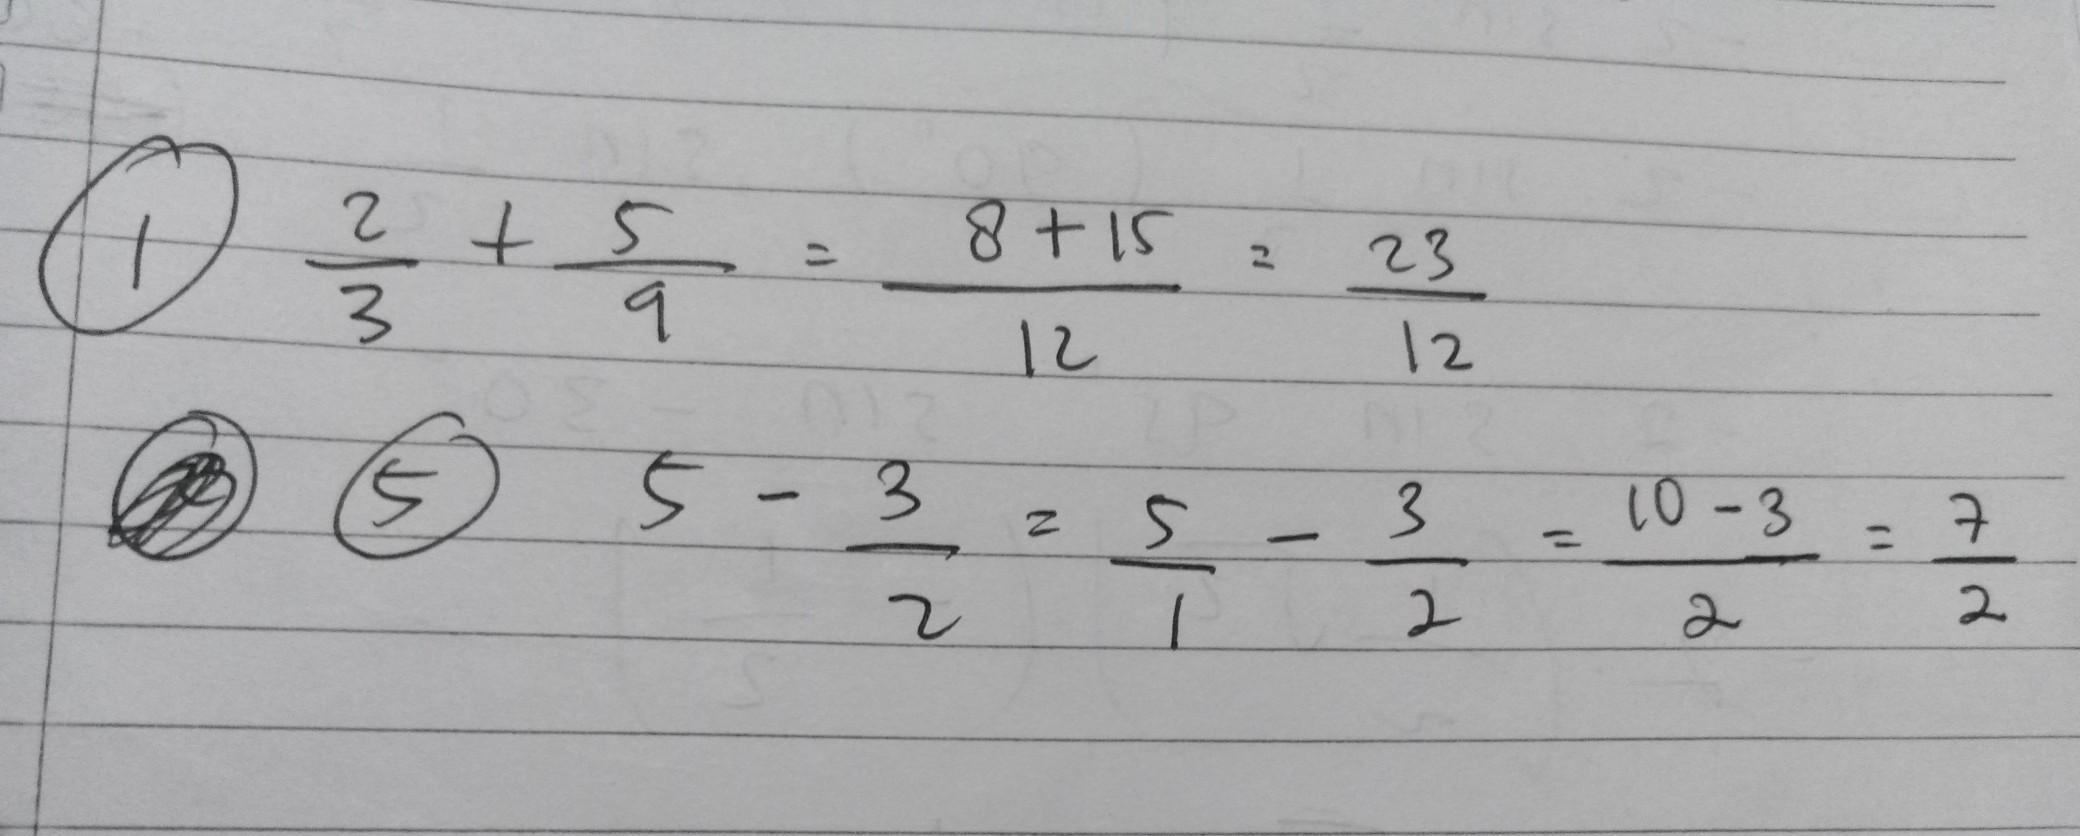 ① 2/3 + 5/9 = (8 + 15)/12 = 23/12
⑤ 5 - 3/2 = 5/1 - 3/2 = (10 - 3)/2 = 7/2